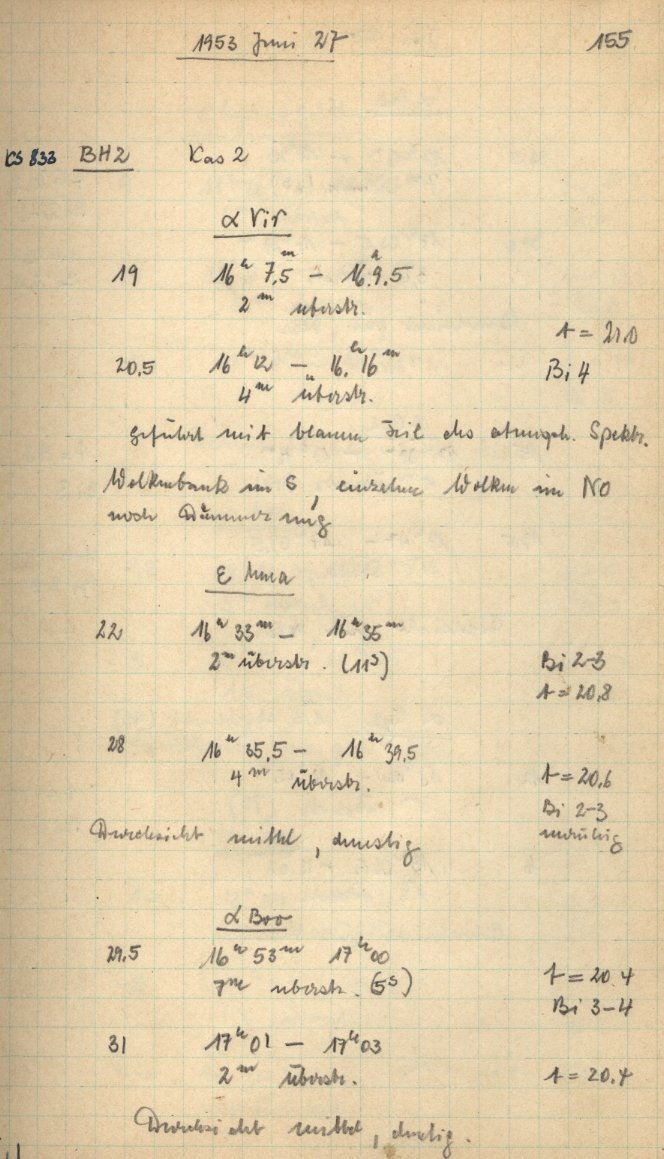 1953 Juni 27 155
KS 833 BH2 Kas 2
α Vir
19 16h 7,5m – 16h 9.5
2m überstr.
t = 21.0
20,5 16h 12 – 16h 16m Bi 4
4m überstr.
geführt mit blauem Teil des Spektr.
Wolkenbank im S, einzelne Wolken im NO
noch Dämmerung
ε Uma
22 16h 33m – 16h 35m
2m überstr. (11s) Bi 2-3
t = 20,8
28 16h 35,5 – 16h 39,5
4m überstr. t = 20,6
Bi 2-3
unruhig
Durchsicht mittel, dunstig
α Boo
29.5 16h 53m 17h 00
7m überstr. (5s) t = 20.4
Bi 3-4
31 17h 01 – 17h 03
2m überstr. t = 20.4
Durchsicht mittel, dunstig.